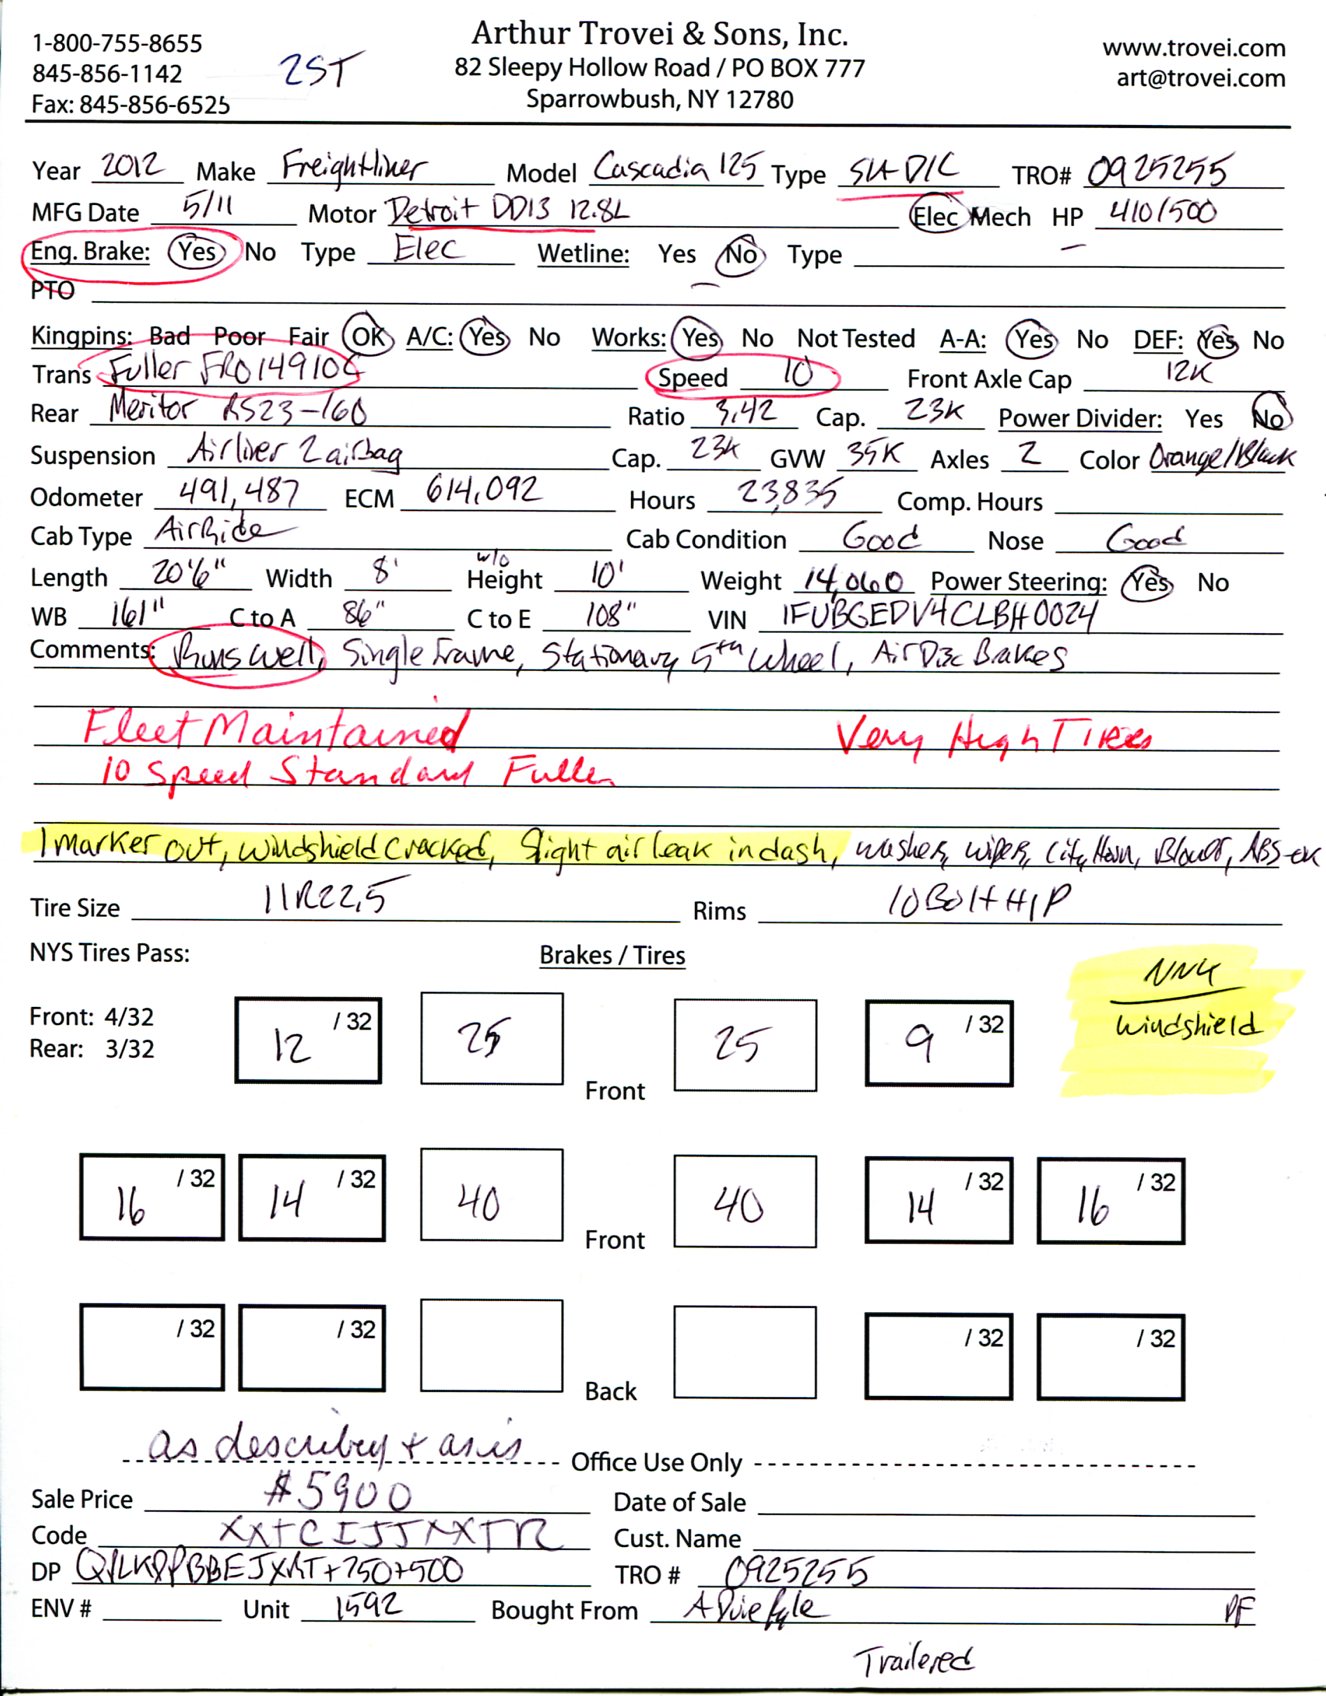 Arthur Trovei & Sons, Inc.
1-800-755-8655 www.trovei.com
845-856-1142 2ST 82 Sleepy Hollow Road / PO BOX 777 art@trovei.com
Fax: 845-856-6525 Sparrowbush, NY 12780
Year 2012 Make Freightliner Model Cascadia 125 Type S/A D/C TRO# 0925255
MFG Date 5/11 Motor Detroit DD13 12.8L Elec Mech HP 410/500
Eng. Brake: Yes No Type Elec Wetline: Yes No Type
PTO
Kingpins: Bad Poor Fair OK A/C: Yes No Works: Yes No Not Tested A-A: Yes No DEF: Yes No
Trans Fuller FRO14910C Speed 10 Front Axle Cap 12K
Rear Meritor RS23-160 Ratio 3.42 Cap. 23K Power Divider: Yes No
Suspension Airliner 2 airbag Cap. 23K GVW 35K Axles 2 Color Orange/Black
Odometer 491,487 ECM 614,092 Hours 23,835 Comp. Hours
Cab Type AirRide Cab Condition Good Nose Good
Length 20'6" Width 8' w/o Height 10' Weight 14,060 Power Steering: Yes No
WB 161" C to A 86" C to E 108" VIN 1FUBGEDV4CLBH0024
Comments: Runs well, Single Frame, Stationary 5th Wheel, Air Disc Brakes
Fleet Maintained Very High Tires
10 Speed Standard Fuller
1 marker out, windshield cracked, Slight air leak in dash, washer, wiper, City Horn, Blower, ABS-ok
Tire Size 11R22.5 Rims 10 Bolt H/P
NYS Tires Pass: Brakes / Tires
NNY
windshield
Front: 4/32
Rear: 3/32
12 /32 25 Front 25 9 /32
16 /32 14 /32 40 Front 40 14 /32 16 /32
/32 /32 Back /32 /32
as describey + as is Office Use Only
Sale Price #5900 Date of Sale
Code Cust. Name
DP TRO # 0925255
ENV # Unit 1592 Bought From PF
Trailered